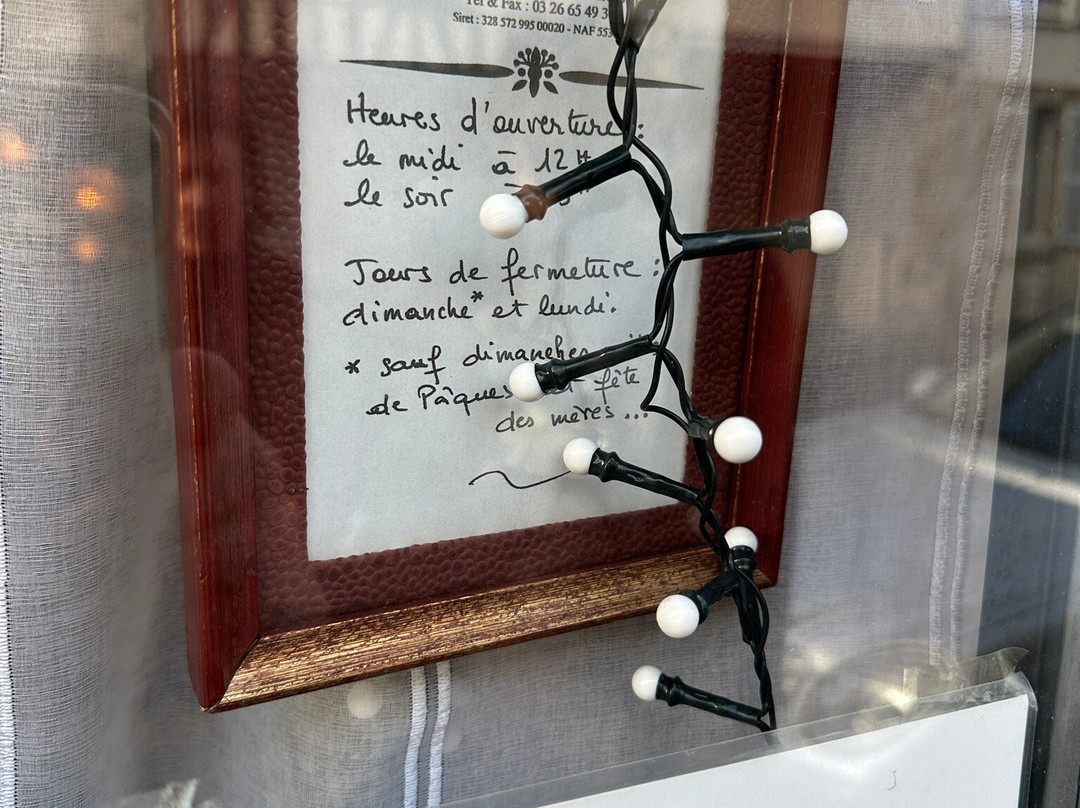 Tel & Fax : 03 26 65 49 3
Siret : 328 572 995 00020 - NAF 553
Heures d'ouverture :
le midi à 12H
le soir
Jours de fermeture :
dimanche* et lundi.
* sauf dimanches
de Pâques fête
des mères ...